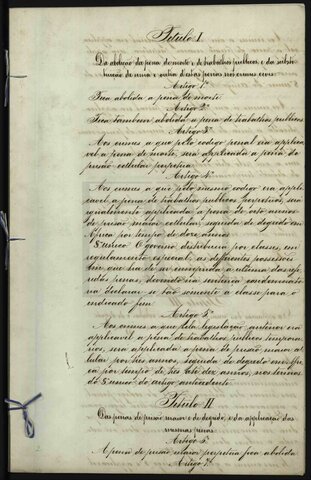 Titulo I.
Da abolição da pena de morte e de trabalhos publicos, e da substi-
tuição de uma e outra d'estas penas nos crimes civis.
Artigo 1º
Fica abolida a pena de morte.
Artigo 2º
Fica tambem abolida a pena de trabalhos publicos.
Artigo 3º
Aos crimes a que pelo codigo penal era applica-
vel a pena de morte, será applicada a pena de
prisão cellular perpetua.
Artigo 4º
Aos crimes a que pelo mesmo codigo era appli-
cavel a pena de trabalhos publicos perpetuos, será
igualmente applicada a pena de oito annos
de prisão maior cellular, seguida de degredo em
Africa por tempo de doze annos.
§ unico. O governo distribuirá por classes, em
regulamento especial, as differentes possessões
em que ha de ser cumprida a ultima das refe-
ridas penas, devendo na sentença condemnato-
ria declarar-se tão sómente a classe para o
indicado fim.
Artigo 5º
Aos crimes a que pela legislação anterior era
applicavel a pena de trabalhos publicos tempora-
rios, será applicada a pena de prisão maior cel-
lular por tres annos, seguida de degredo em Afri-
ca por tempo de tres até dez annos, nos termos
do § unico do artigo antecedente.
Titulo II.
Das penas de prisão maior e de degredo, e da applicação das
mesmas penas.
Artigo 6º
A pena de prisão maior perpetua fica abolida.
Artigo 7º